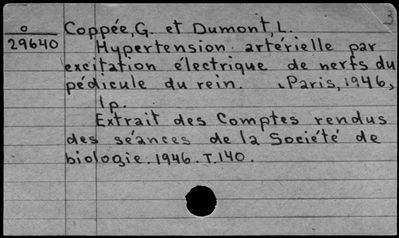 3
o
29640
Coppée, G. et Dumont, L.
Hypertension artérielle par
excitation électrique de nerfs du
pédicule du rein. Paris, 1946,
1p.
Extrait des Comptes rendus
des séances de la Société de
biologie. 1946. T. 140.